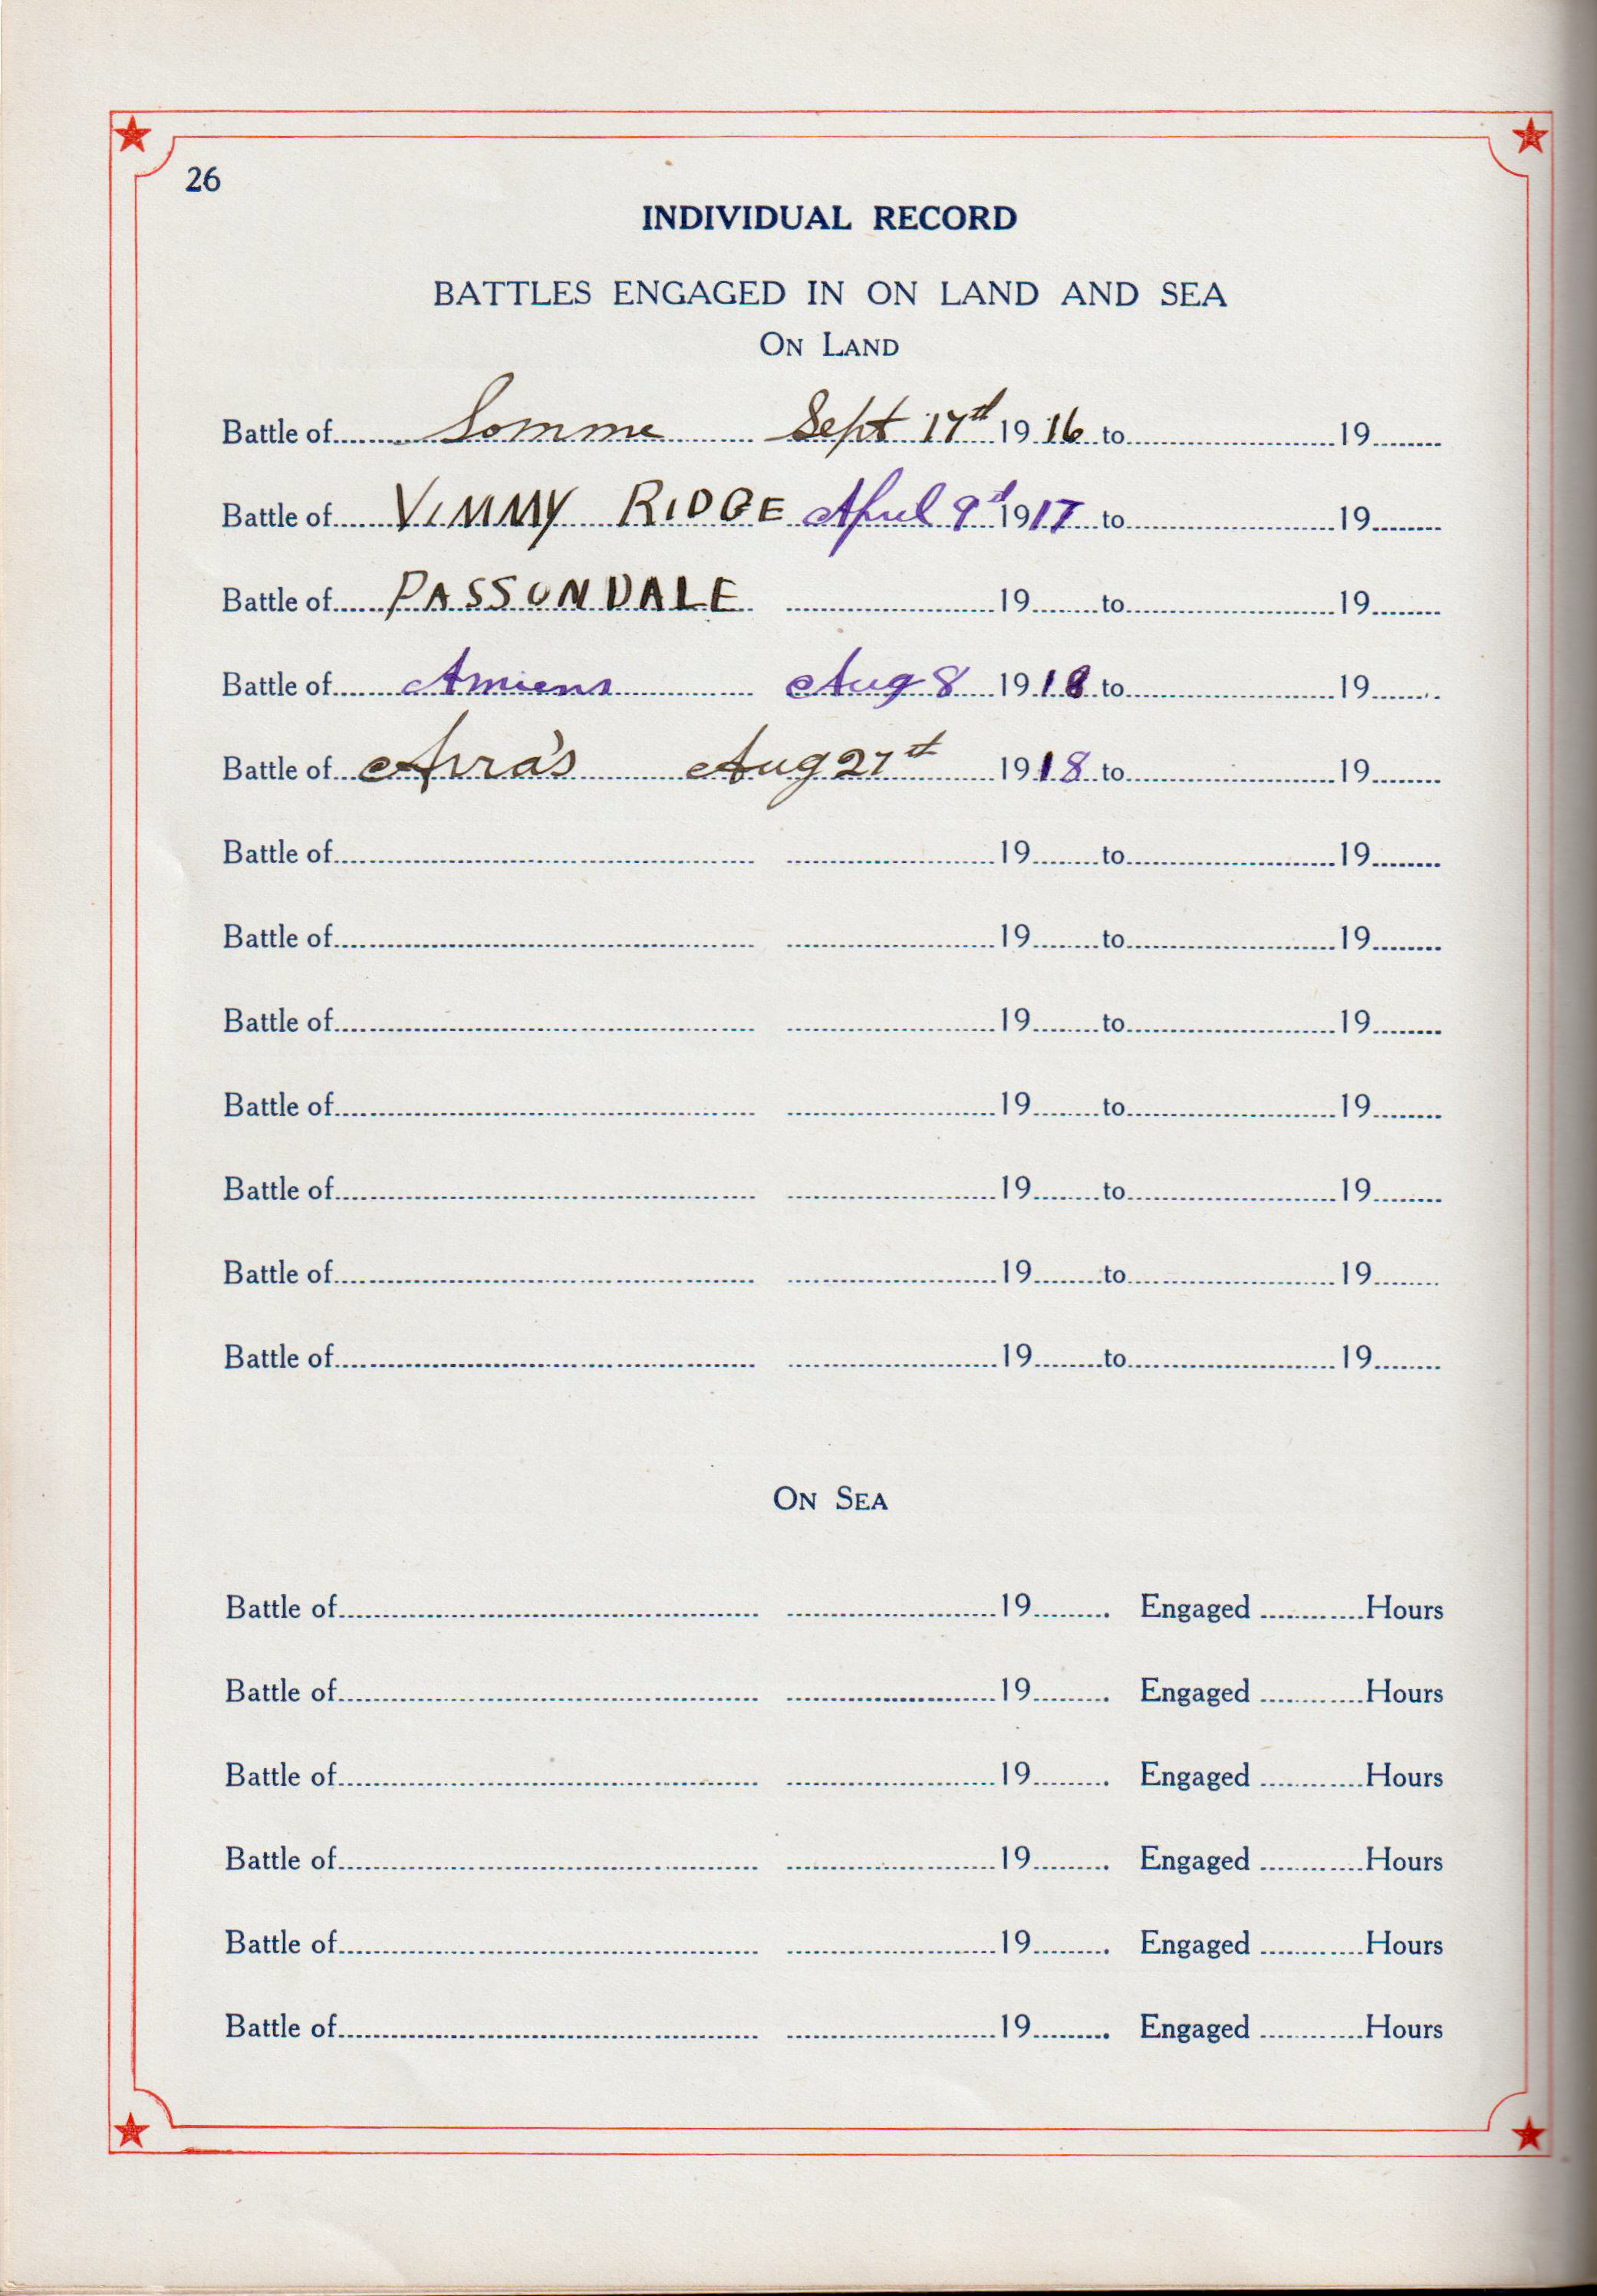 26
INDIVIDUAL RECORD
BATTLES ENGAGED IN ON LAND AND SEA
ON LAND
Battle of Somme Sept 17th 1916 to 19
Battle of VIMMY RIDGE April 9th 1917 to 19
Battle of PASSONDALE 19 to 19
Battle of Amiens Aug 8 1918 to 19
Battle of Arra's Aug 27th 1918 to 19
Battle of 19 to 19
Battle of 19 to 19
Battle of 19 to 19
Battle of 19 to 19
Battle of 19 to 19
Battle of 19 to 19
Battle of 19 to 19
ON SEA
Battle of 19 Engaged Hours
Battle of 19 Engaged Hours
Battle of 19 Engaged Hours
Battle of 19 Engaged Hours
Battle of 19 Engaged Hours
Battle of 19 Engaged Hours